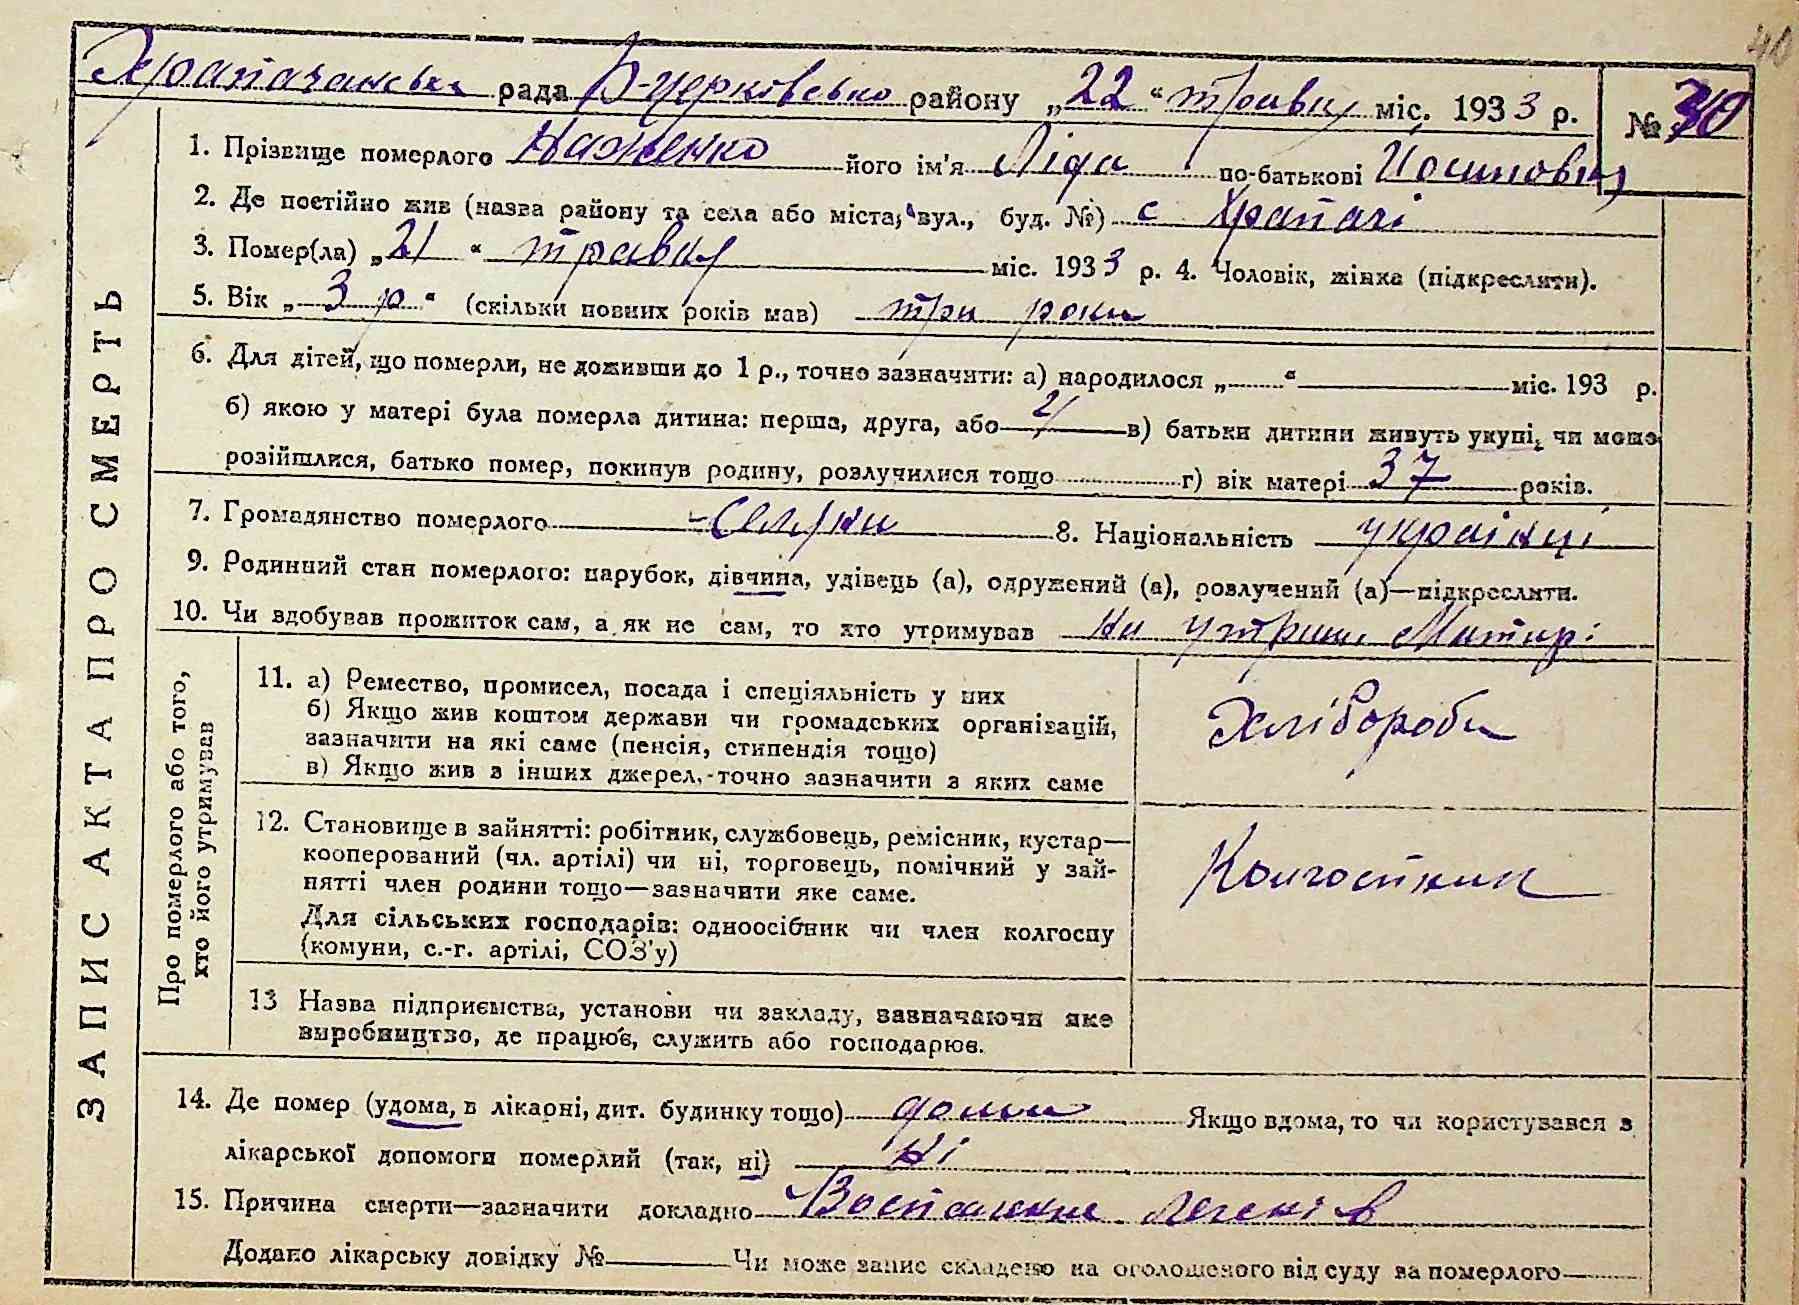 40
Храпачанська рада Б-Церковсько району „22“ травня міс. 1933 р. №
1. Прізвище померлого його ім'я Ліда по-батькові Йосиповна
2. Де постійно жив (назва району та села або міста, вул., буд. №) с Храпачі
3. Помер(ла) „21“ травня міс. 1933 р. 4. Чоловік, жінка (підкреслити).
5. Вік „3 р“ (скільки повних років мав) три роки
6. Для дітей, що померли, не доживши до 1 р., точно зазначити: а) народилося „ “ міс. 193 р.
б) якою у матері була померла дитина: перша, друга, або в) батьки дитини живуть укупі, чи може
розійшлися, батько помер, покинув родину, розлучилися тощо г) вік матері 37 років.
7. Громадянство померлого 8. Національність українці
9. Родинний стан померлого: парубок, дівчина, удівець (а), одружений (а), розлучений (а)—підкреслити.
10. Чи вдобував прожиток сам, а як не сам, то хто утримував На утрим. Матирі
ЗАПИС АКТА ПРО СМЕРТЬ
Про померлого або того,
хто його утримував
11. а) Ремество, промисел, посада і спеціяльність у них
б) Якщо жив коштом держави чи громадських організацій,
зазначити на які саме (пенсія, стипендія тощо)
в) Якщо жив з інших джерел,-точно зазначити з яких саме
Хлібороби
12. Становище в зайнятті: робітник, службовець, ремісник, кустар—
кооперований (чл. артілі) чи ні, торговець, помічний у зай-
нятті член родини тощо—зазначити яке саме.
Для сільських господарів: одноосібник чи член колгоспу
(комуни, с.-г. артілі, СОЗ'у)
Колгоспник
13 Назва підприємства, установи чи закладу, зазначаючи яке
виробництво, де працює, служить або господарює.
14. Де помер (удома, в лікарні, дит. будинку тощо) дома Якщо вдома, то чи користувався з
лікарської допомоги померлий (так, ні) Ні
15. Причина смерти—зазначити докладно Воспаление легенів
Додано лікарську довідку № Чи може запис складено на оголошеного від суду за померлого